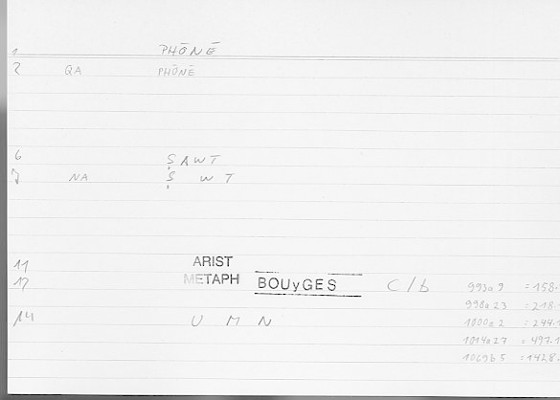 1 PHŌNĒ
2 QA PHŌNĒ
6 ṢAWT
NA Ṣ WT
11 ARIST
12 METAPH BOUyGES C/b 993a9 =158-
998a23 =218-
14 U M N 1000a2 =244.
1014a27 =497.1
1069b5 =1428.